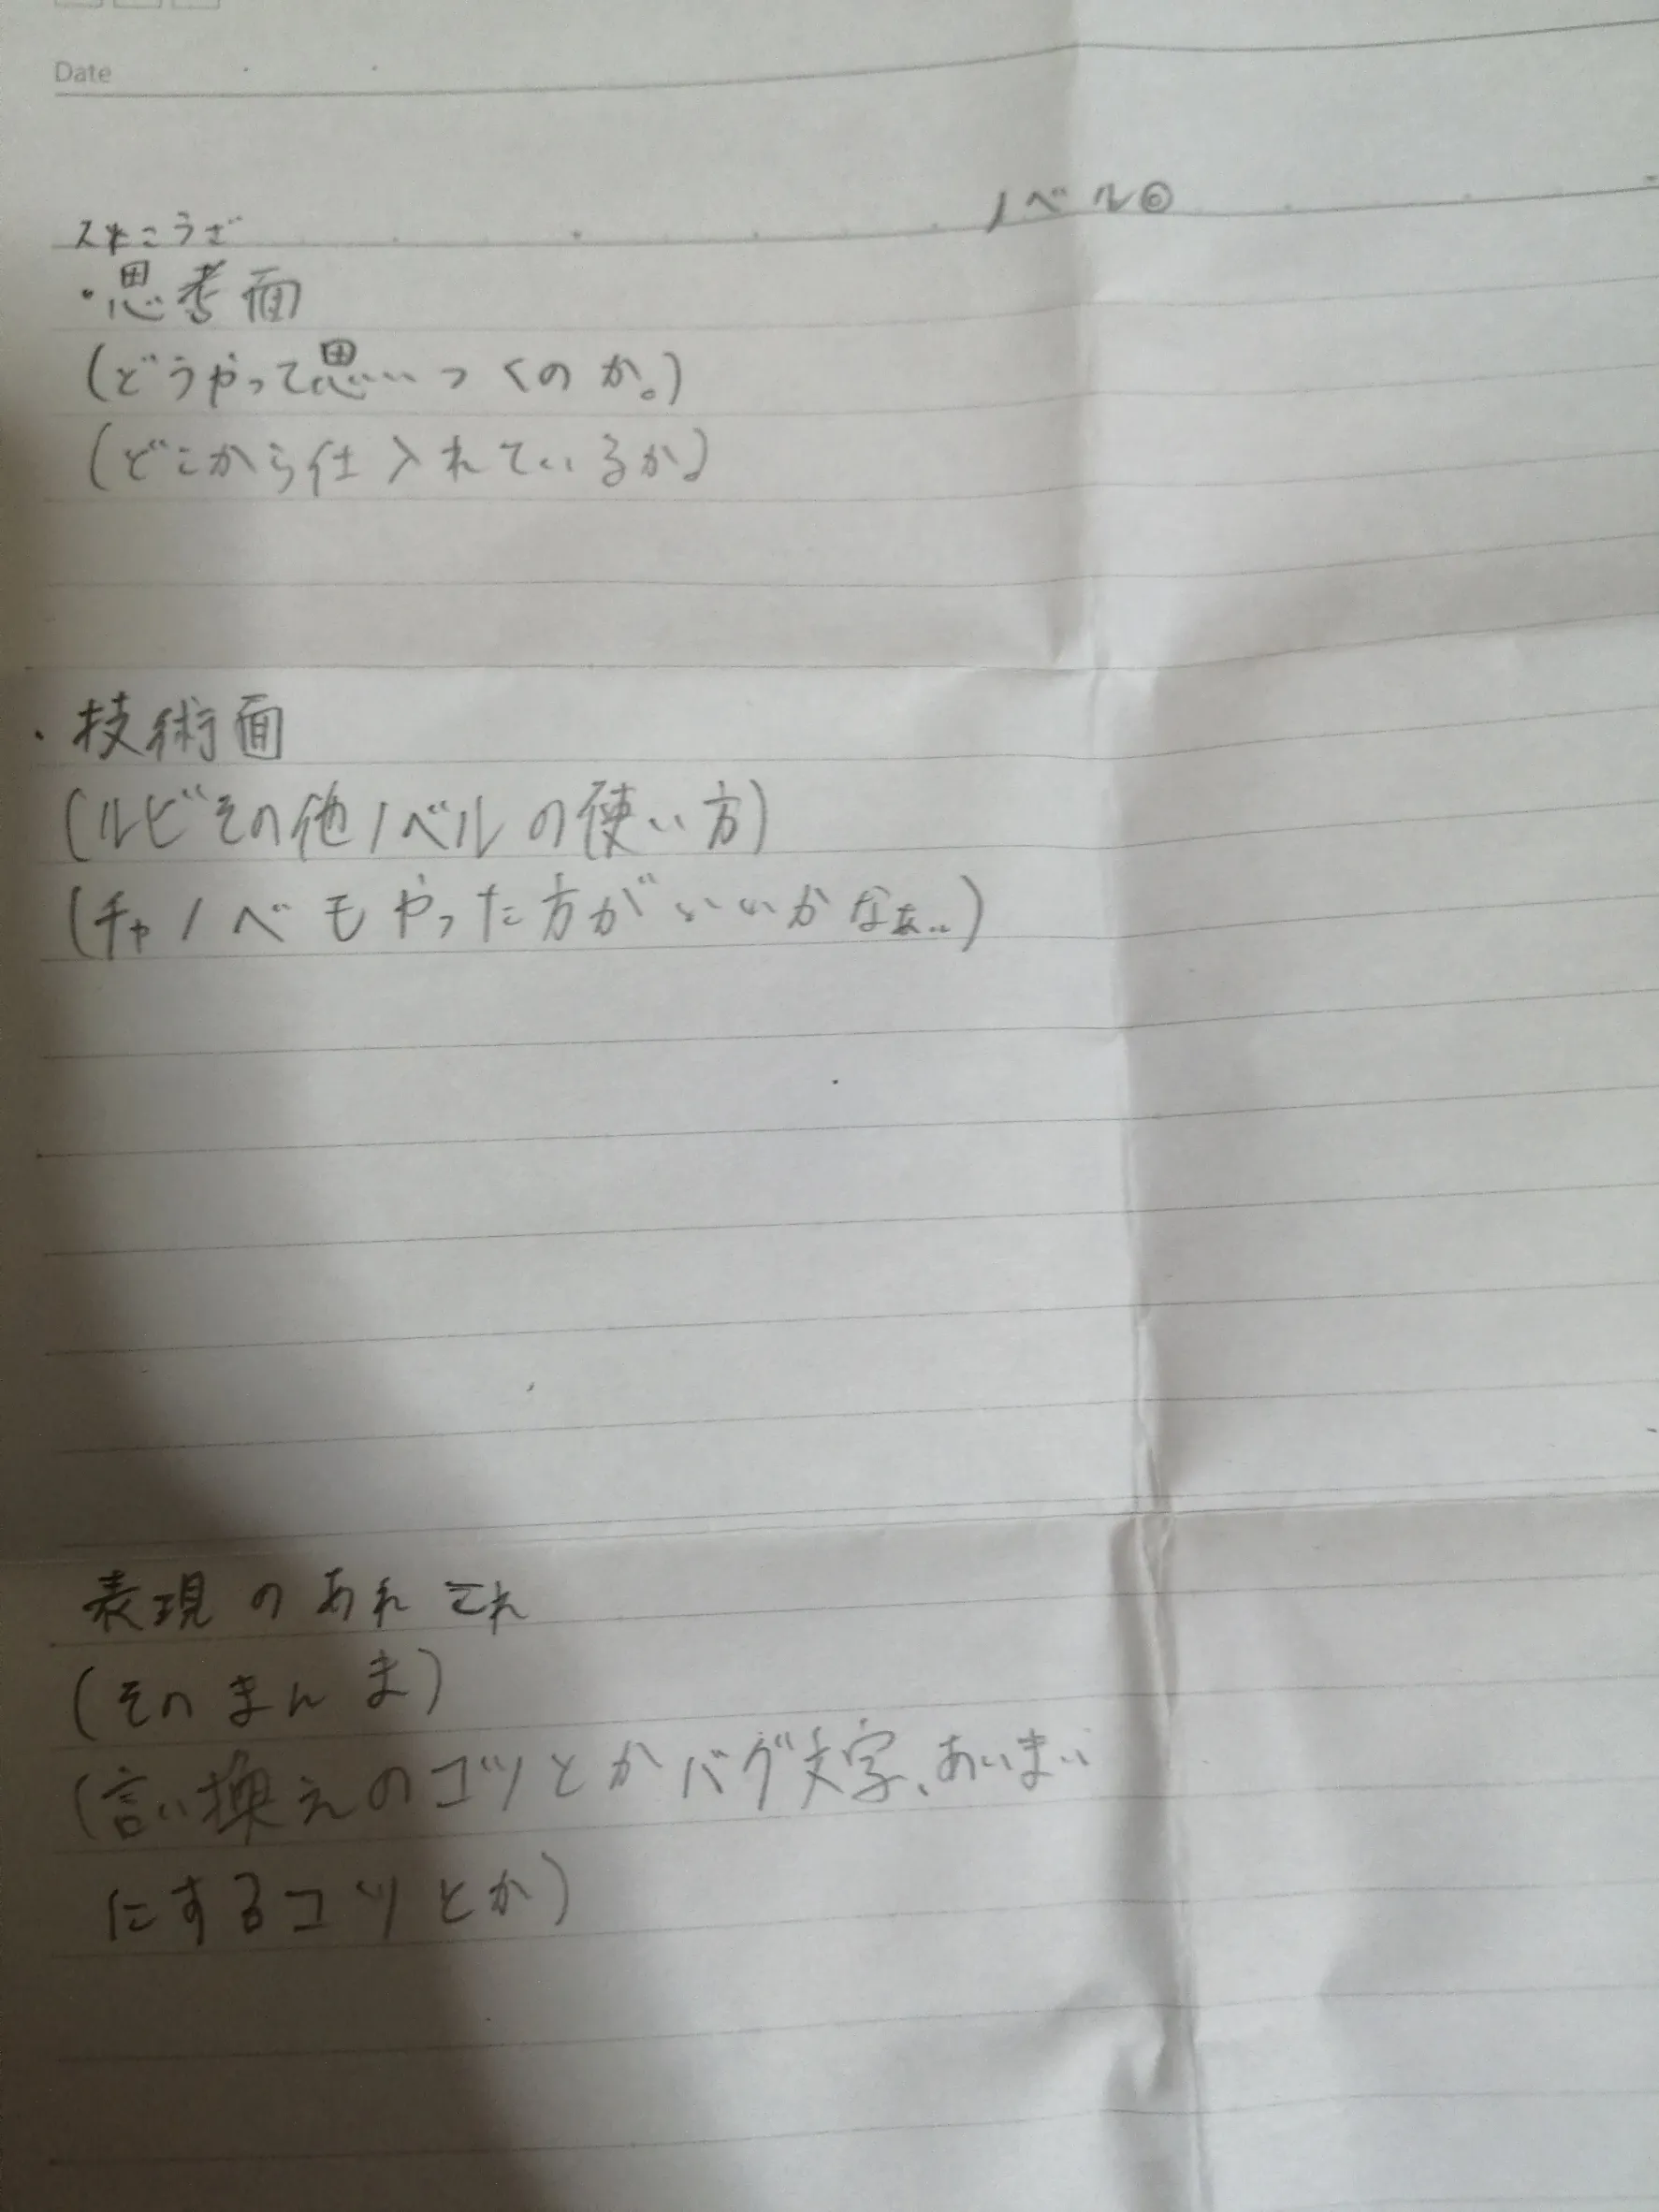 Date
ノベル◎
こうざ
・思考面
(どうやって思いつくのか。)
(どこから仕入れているか)
・技術面
(ルビその他ノベルの使い方)
(チャノベもやった方がいいかなぁ..)
表現のあれこれ
(そのまんま)
(言い換えのコツとかバグ文字、あいまい
にするコツとか)